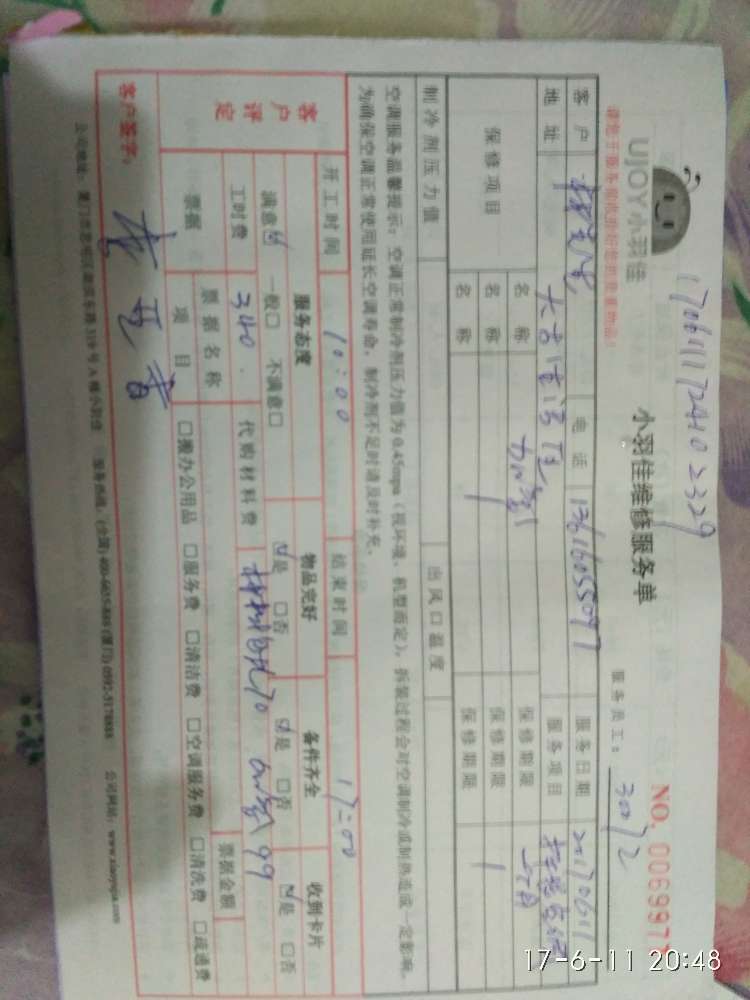 170611172410 2329
UJOY小羽佳
小羽佳维修服务单
NO. 006997
服务员工: 30072
客户 电话 13616055097 服务日期 20170611
地址 服务项目
保修项目 名称 保修期限
名称 保修期限
名称
制冷剂压力值 出风口温度
空调服务温馨提示:空调正常制冷剂压力值为0.45mpa(视环境、机型而定),拆装过程会对空调制冷或制热造成一定影响。
为确保空调正常使用延长空调寿命,制冷剂不足时请及时补充。
开工时间 10:00 结束时间 17:00
客户评定
服务态度 物品完好 备件齐全 收到卡片
满意☑ 一般□ 不满意□ ☑是 □否 ☑是 □否 ☑是 □否
工时费 340 代购材料费 70 99
票据 票据名称 票据金额
项目 □搬办公用品 □服务费 □清洁费 □空调服务费 □清洗费 □疏通费
客户签字:
公司地址:厦门市思明区 319号A栋小羽佳 服务热线:(全国)400-6655-888 (厦门)0592-5178888 公司网站:www.xiaoyujia.com
17-6-11 20:48